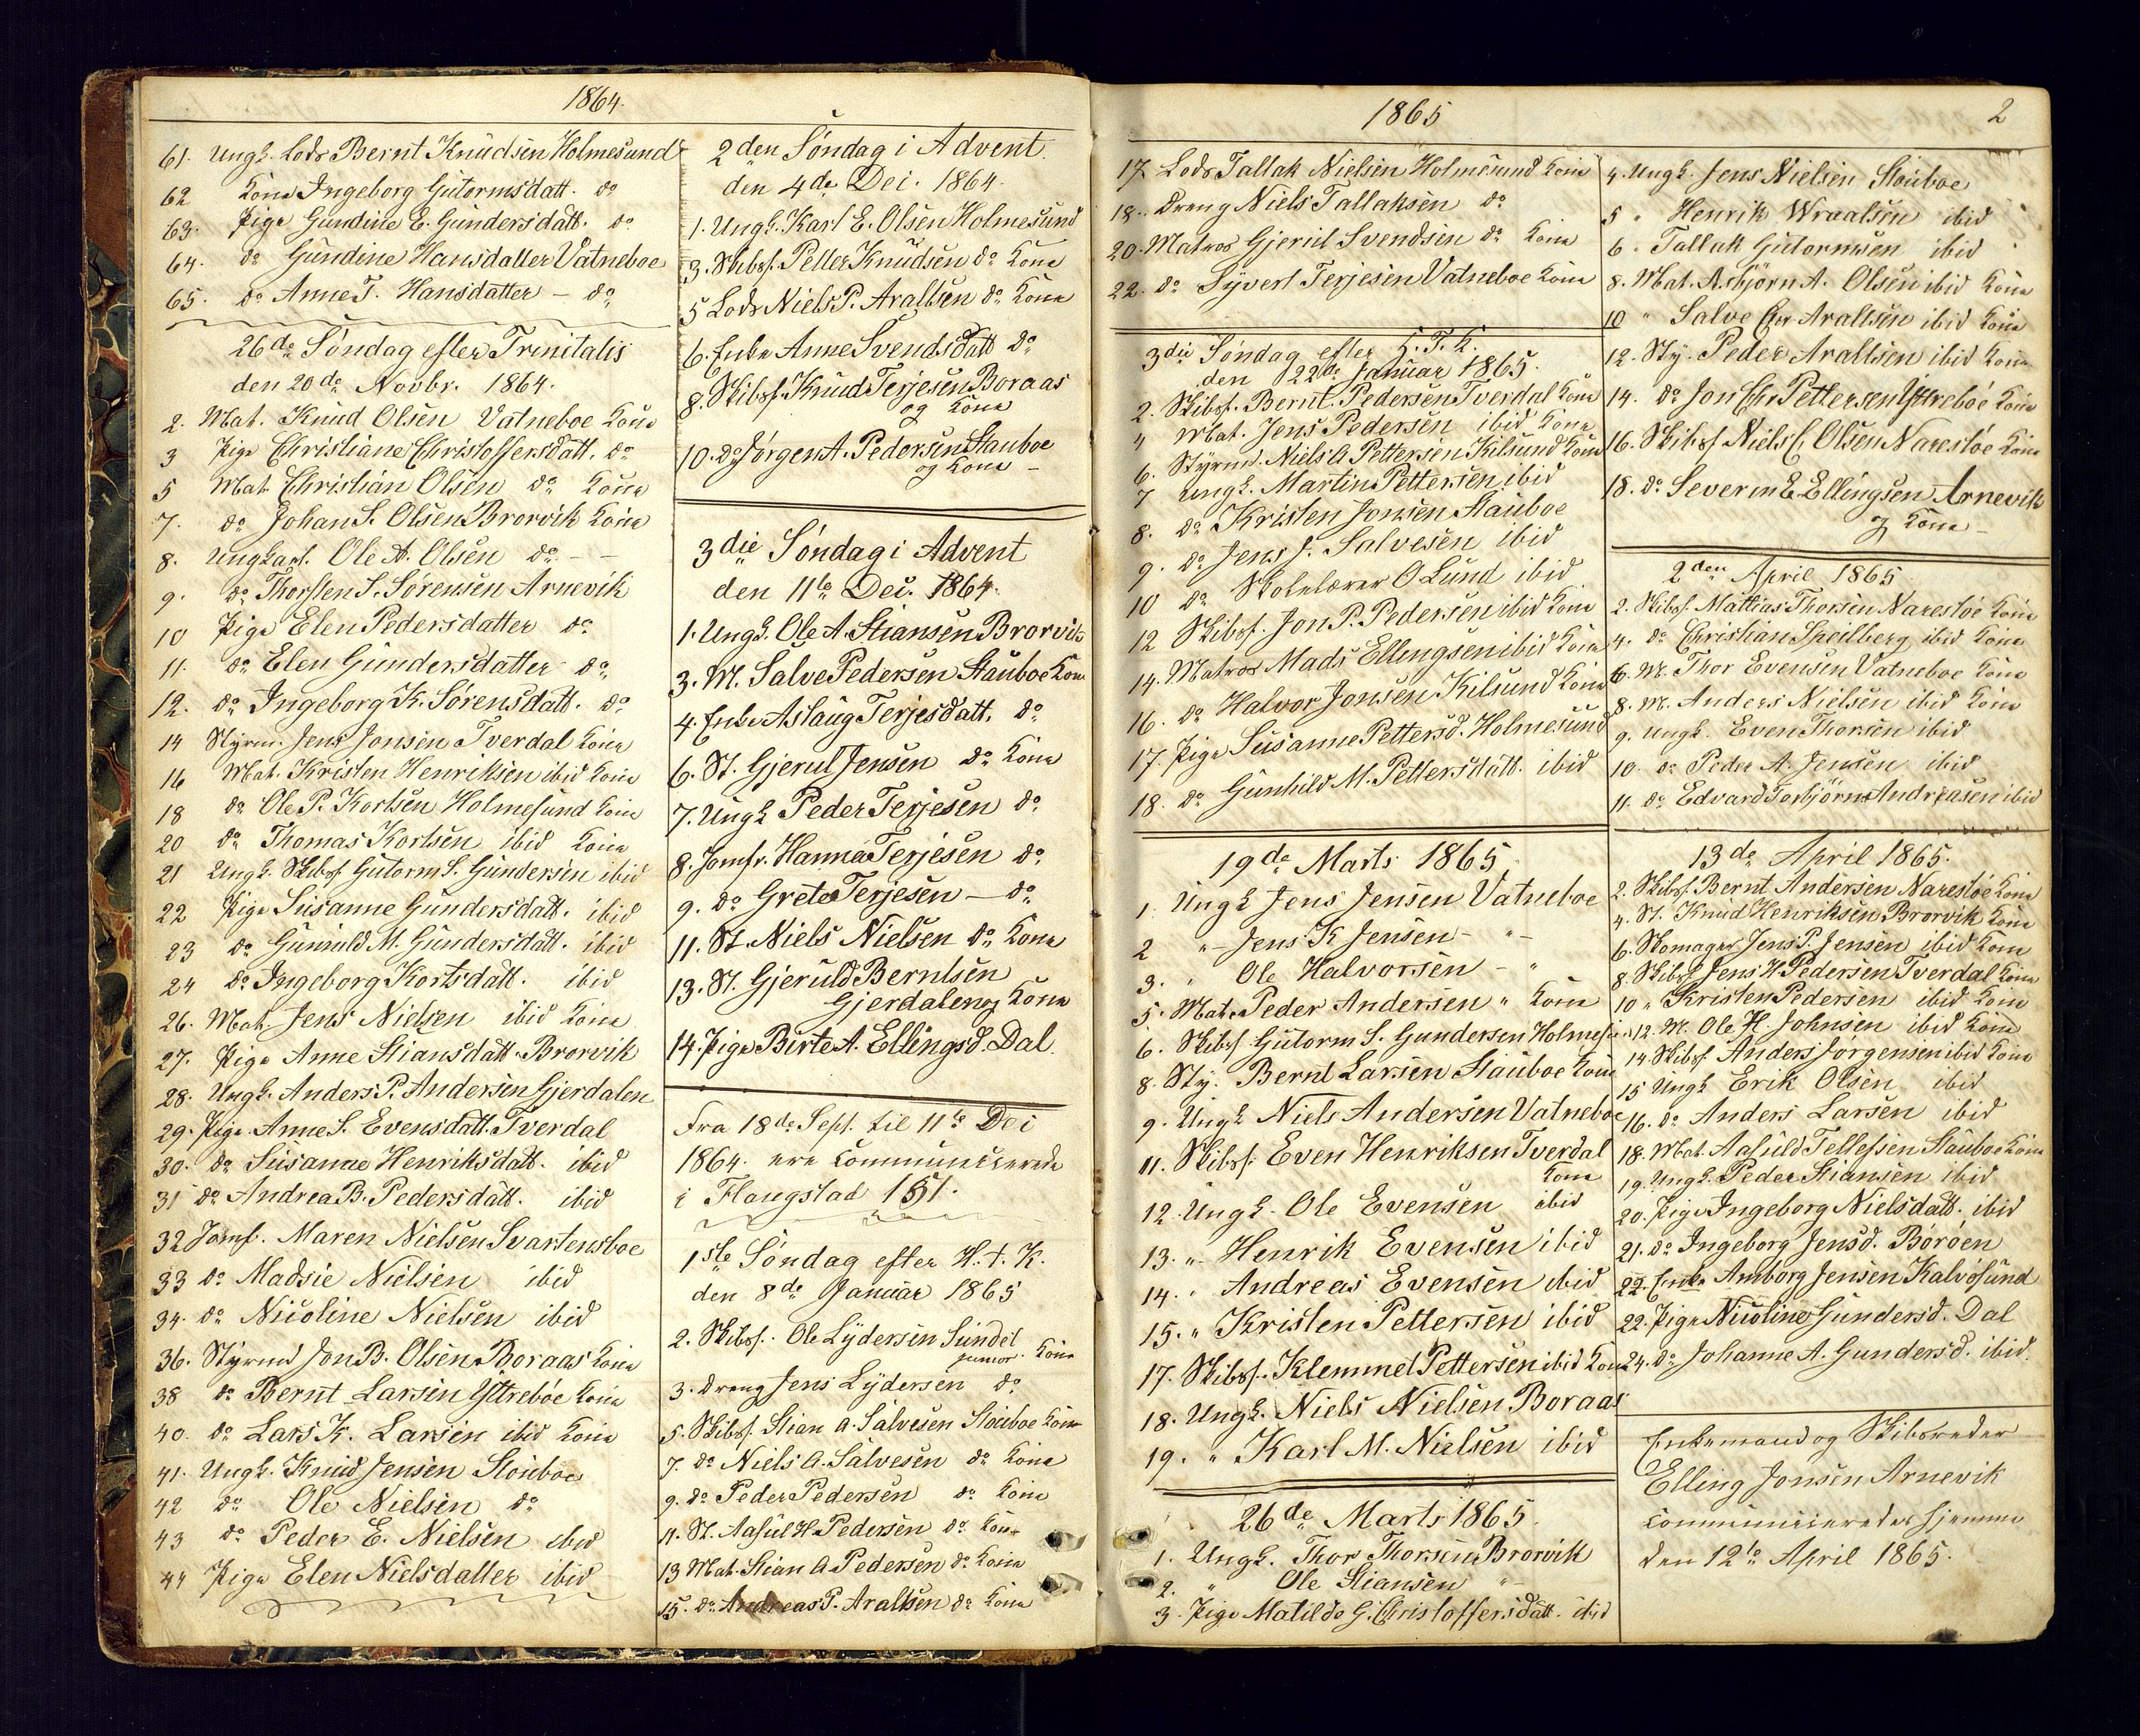 1864.
61. Ungk. Lods Bernt Knudsen Holmesund
62 Kone Ingeborg Gutormsdatt. do
63. Pige Gundine E. Gundersdatt. do
64. do Gundine Hansdatter Vatneboe
65. do Anne T. Hansdatter – do
26de Søndag efter Trinitatis
den 20de Novbr. 1864.
2. Mat. Knud Olsen Vatneboe Kone
3 Pige Christiane Christoffersdatt. do
5 Mat. Christian Olsen do Kone
7. do Johan S. Olsen Brorvik Kone
8. Ungkarl. Ole A. Olsen do – –
9. do Thorsten S. Sørensen Arnevik
10 Pige Elen Pedersdatter do
11. do Elen Gundersdatter do
12. do Ingeborg K. Sørensdatt. do
14 Styrm. Jens Jonsen Tverdal Kone
16 Mat. Kristen Henriksen ibid Kone
18 do Ole P. Kortsen Holmesund Kone
20 do Thomas Kortsen ibid Kone
21 Ungk. Skibsf. Gutorm S. Gundersen ibid
22 Pige Susanne Gundersdatt. ibid
23 do Gunuld M. Gundersdatt. ibid
24 do Ingeborg Kortsdatt. ibid
26. Mat. Jens Nielsen ibid Kone
27. Pige Anne Stiansdatt. Brorvik
28. Ungk. Anders P. Andersen Gjerdalen
29. Pige Anne S. Evensdatt. Tverdal
30. do Susanne Henriksdatt. ibid
31 do Andrea B. Pedersdatt. ibid
32 Jomf. Maren Nielsen Svartensboe
33 do Madsie Nielsen ibid
34. do Nicoline Nielsen ibid
36. Styrmd Jon B. Olsen Boraas Kone
38 do Bernt Larsen Yttrebøe Kone
40. do Lars K. Larsen ibid Kone
41. Ungk. Knud Jensen Stouboe
42 do Ole Nielsen do
43 do Peder E. Nielsen ibid
44 Pige Elen Nielsdatter ibid
2den Søndag i Advent.
den 4de Dec. 1864.
1. Ungk. Karl E. Olsen Holmesund
3. Skibsf. Petter Knudsen do Kone
5 Lods Niels P. Araltsen do Kone
6. Enke Anne Svendsdatt do
8. Skibsf. Knud Terjesen Boraas
og Kone
10. do Jørgen A. Pedersen Stauboe
og Kone –
3die Søndag i Advent
den 11te Dec. 1864.
1. Ungk. Ole A. Stiansen Brorvik
3. M. Salve Pedersen Stauboe Kone
4. Enke Aslaug Terjesdatt. do
6. St. Gjerul Jensen do Kone
7. Ungk Peder Terjesen do
8. Jomfr. Hanna Terjesen do
9. do Grete Terjesen – do
11. St. Niels Nielsen do Kone
13. St. Gjeruld Berntsen
Gjerdalen og Kone
14. Pige Birte A. Ellingsd. Dal.
Fra 18de Sept. til 11te Dec
1864. ere Communicerede
i Flaugstad 151.
1ste Søndag efter H. t. K.
den 8de Januar 1865
2. Skibsf. Ole Lydersen Sundet
junior. Kone
3. Dreng Jens Lydersen do
5. Skibsf. Stian A. Salvesen Stouboe Kone
7. do Niels A. Salvesen do Kone
9. do Peder Pedersen do Kone
11. St. Aasul H. Pedersen do Kone
13 Mat. Stian A. Pedersen do Kone
15. do Andreas P. Araltsen do Kone
1865
2
17. Lods Tallak Nielsen Holmesund Kone
18. Dreng Niels Tallaksen do
20. Matros Gjeruel Svendsen do Kone
22. do Syvert Terjesen Vatneboe Kone
3die Søndag efter H. T. K.
den 22de Januar 1865.
2. Skibsf. Bernt Pedersen Tverdal Kone
4 Mat. Jens Pedersen ibid Kone
6. Styrmd. Niels A Pettersen Kilsund Kone
7 Ungk. Martin Pettersen ibid
8. do Kristen Jonsen Stauboe
9. do Jens J. Salvesen ibid
10 do Skolelærer O Lund ibid
12 Skibsf. Jon P. Pedersen ibid Kone
14. Matros Mads Ellingsen ibid Kone
16. do Halvor Jonsen Kilsund Kone
17. Pige Susanne Pettersd. Holmesund
18. do Gunhild M. Pettersdatt. ibid
19de Marts 1865
1. Ungk Jens Jensen Vatneboe
2 " – Jens K Jensen – " –
3. " Ole Halvorsen – "
5. Mat. Peder Andersen " Kone
6. Skibsf. Gutorm S. Gundersen Holmes
8. Sty. Bernt Larsen Stauboe Kone
9. Ungk Niels Andersen Vatneboe
11. Skibsf. Even Henriksen Tverdal
Kone
12. Ungk. Ole Evensen ibid
13. " Henrik Evensen ibid
14. " Andreas Evensen ibid
15. " Kristen Pettersen ibid
17. Skibsf. Klemmet Pettersen ibid Kone
18. Ungk. Niels Nielsen Boraas
19. " Karl M. Nielsen ibid
26de Marts 1865.
1. Ungk. Thor Thorsen Brorvik
2. " Ole Stiansen " –
3. Pige Matilde G. Christoffersdatt. ibid
4. Ungk. Jens Nielsen Stouboe
5 " Henrik Wraalsen ibid
6. Tallak Gutormsen ibid
8. Mat. Asbjørn A. Olsen ibid Kone
10 " Salve Chr Araltsen ibid Kone
12. Sty. Peder Araltsen ibid Kone
14. do Jon Chr Pettersen Yttrebøe Kone
16. Skibsf. Niels C. Olsen Narestøe Kone
18. do Severin E. Ellingsen Arnevik
og Kone –
2den April 1865
2. Skibsf. Mattias Thorsen Narestøe Kone
4. do Christian Speilberg ibid Kone
6. M. Thor Evensen Vatneboe Kone
8. M. Anders Nielsen ibid Kone
9. Ungk. Even Thorsen ibid
10. do Peder A. Jensen ibid
11. do Edvard Torbjørn Andreasen ibid
13de April 1865.
2. Skibsf. Bernt Andersen Narestøe Kone
4. St. Knud Henriksen Brorvik Kone
6. Skomager Jens P. Jensen ibid Kone
8. Skibsf. Jens H Pedersen Tverdal Kone
10 " Kristen Pedersen ibid Kone
12. M. Ole H. Johnsen ibid Kone
14. Skibsf. Anders Jørgensen ibid Kone
15 Ungk Erik Olsen ibid
16. do Anders Larsen ibid
18. Mat. Aasuld Tellefsen Stauboe Kone
19. Ungk. Peder Stiansen ibid
20. Pige Ingeborg Nielsdatt. ibid
21. do Ingeborg Jensd. Børøen
22. Enke Amborg Jensen Kalvøsund
22. Pige Nicoline Gundersd. Dal
24. do Johanne A. Gundersd. ibid.
Enkemand og Skibsreder
Elling Jonsen Arnevik
communiceredes hjemme
den 12te April 1865.